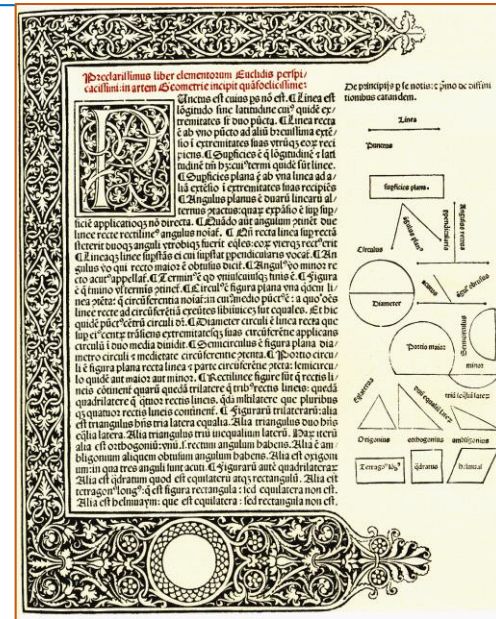 Preclarissimus liber elementorum Euclidis perspi/
cacissimi: in artem Geometrie incipit quãfoelicissime:
Punctus est cuius ps nõ est. ¶ Linea est
lõgitudo sine latitudine cuiꝰ quidẽ ex/
tremitates sũt duo pũcta. ¶ Linea recta
ẽ ab vno pũcto ad aliũ breuissima extẽ/
sio ĩ extremitates suas vtrũqꝫ eoꝝ reci
piens. ¶ Supficies ẽ q̃ lõgitudinẽ ⁊ lati
tudinẽ tm̃ hꝫ: cuiꝰ termi quidẽ sũt linee.
¶ Supficies plana ẽ ab vna linea ad a/
liã extẽsio ĩ extremitates suas recipiẽs
¶ Angulus planus ẽ duarũ linearũ al/
ternus ptactus: quaꝝ expãsio ẽ sup sup/
ficiẽ applicatioqꝫ nõ directa. ¶ Quãdo aũt angulum ptinẽt due
linee recte rectilineꝰ angulus noiať. ¶ Qñ recta linea sup rectã
steterit duoqꝫ anguli vtrobiqꝫ fuerit eq̃les: eoꝝ vterqꝫ rectꝰ erit
¶ Lineaqꝫ linee supstãs ei cui supstat ppendicularis vocať. ¶ An
gulus vo qui recto maior ẽ obtusus diciť. ¶ Angulꝰ vo minor re
cto acutꝰ appellať. ¶ Terminꝰ ẽ qd vniuscuiusqꝫ finis ẽ. ¶ Figura
ẽ q̃ tmino vľ terminis ptineť. ¶ Circulꝰ ẽ figura plana vna qdem li/
nea ptẽta: q̃ circũferentia noiať: in cuiꝰ medio pũctꝰ ẽ: a quo oẽs
linee recte ad circũferẽtiã exeũtes sibiinuicẽ sũt equales. Et hic
quidẽ pũctꝰ cẽtrũ circuli dř. ¶ Diameter circuli ẽ linea recta que
sup eiꝰ centꝝ trãsiens extremitatesqꝫ suas circũferẽtie applicans
circulũ ĩ duo media diuidit. ¶ Semicirculus ẽ figura plana dia/
metro circuli ⁊ medietate circũferentie ptenta. ¶ Portio circu/
li ẽ figura plana recta linea ⁊ parte circũferẽtie ptẽta: semicircu/
lo quidẽ aut maior aut minor. ¶ Rectilinee figure sũt q̃ rectis li/
neis cõtinent quarũ quedã trilatere q̃ tribꝰ rectis lineis: quedã
quadrilatere q̃ quatuor rectis lineis. qdã mľtilatere que pluribus
qꝫ quatuor rectis lineis continenť. ¶ Figurarũ trilaterarũ: alia
est triangulus hñs tria latera equalia. Alia triangulus duo hñs
eq̃lia latera. Alia triangulus triũ inequalium laterũ. Haꝝ iterũ
alia est orthogoniũ: vnũ ſ. rectum angulum habens. Alia ẽ am/
bligonium aliquem obtusum angulum habens. Alia est oxigoni
um: in qua tres anguli sunt acuti. ¶ Figurarũ aũt quadrilateraꝝ
Alia est qdratum quod est equilaterũ atqꝫ rectangulũ. Alia est
tetragonꝰ longꝰ: q̃ est figura rectangula: sed equilatera non est.
Alia est helmuaym: que est equilatera: sed rectangula non est.
De principijs p se notis: ⁊ pmo de diffini
tionibus earundem.
Linea
Punctus
supficies plana.
Circulus
Diameter
Portio maior
minor
Oxigonius